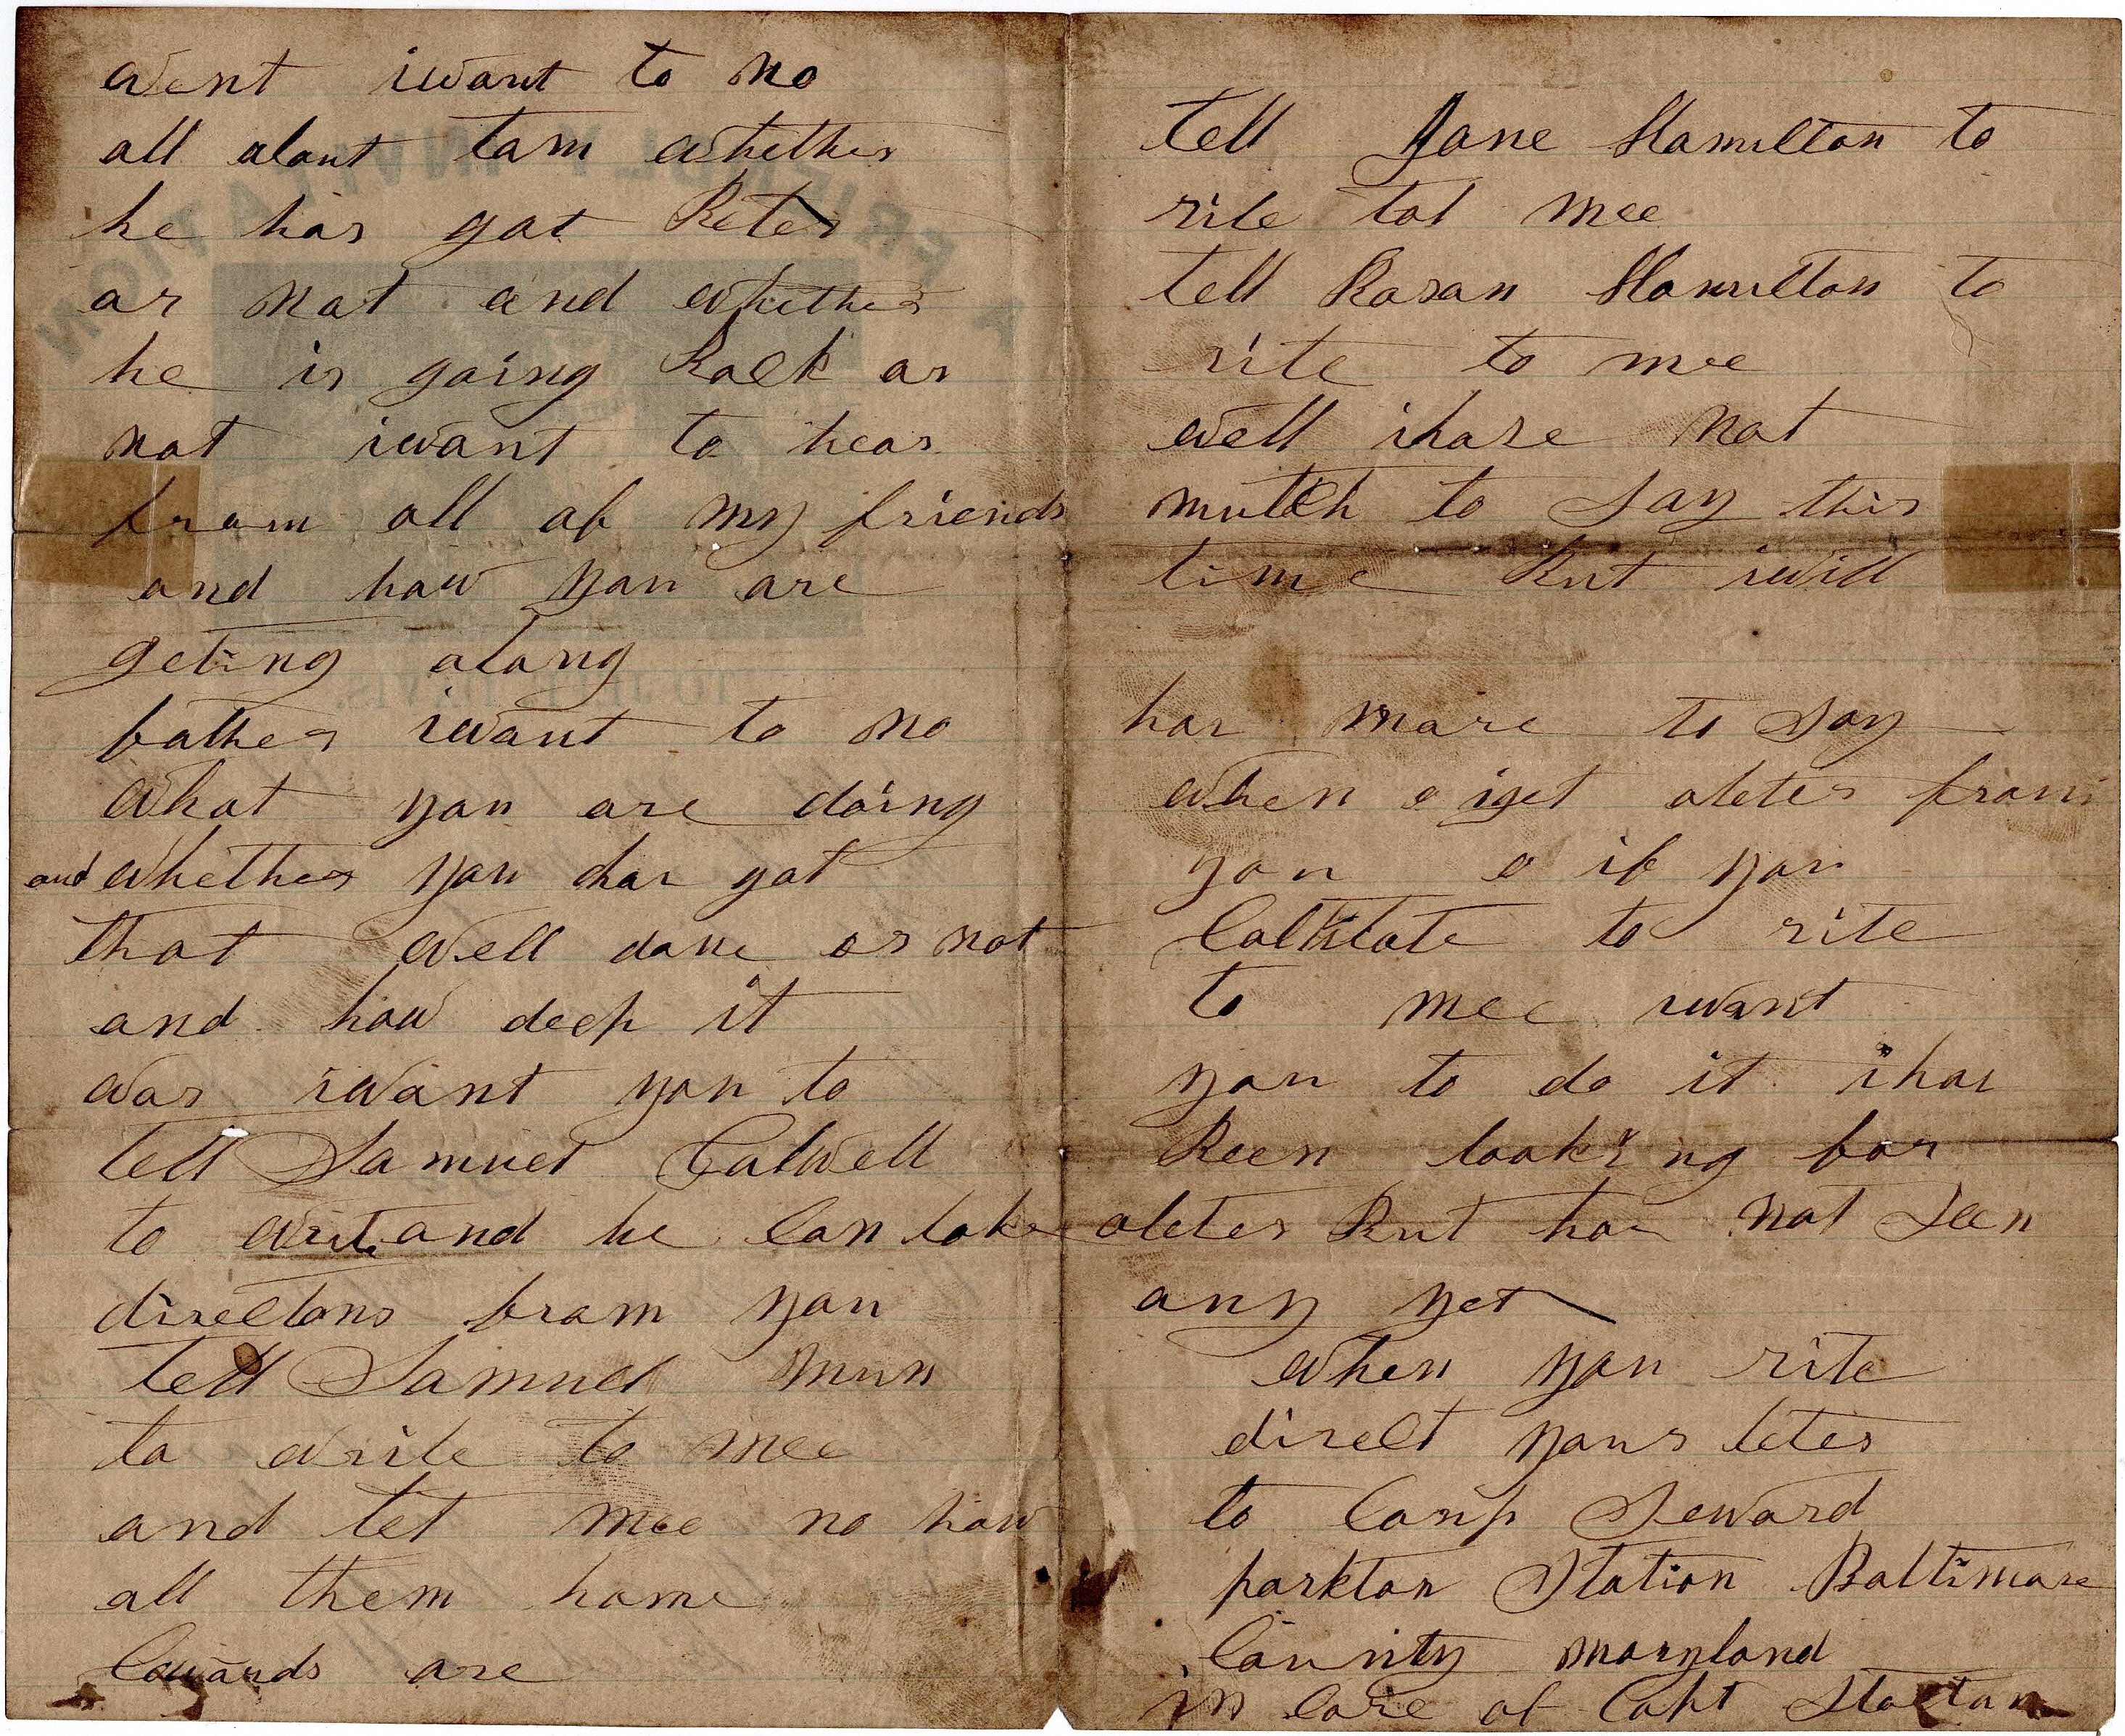 went iwant to no
all about tom whether
he has got Beter
or not and whether
he is going Back or
not iwant to hear
from all of my friends
and how you are
geting along
father iwant to no
what you are doing
and whether you har got
that well done or not
and how deep it
was iwant you to
tell Samuel Calwell
to write and he Can take
directons from you
tell Samuel
to write to mee
and let mee no how
all them home
Cowards are
tell Jane Hamilton to
rite tot mee
tell Rosan Hamilton to
rite to mee
well ihave not
mutch to Say this
time But iwill
har more to Say
when iget aleter from
you o if you
to rite
to mee iwant
you to do it ihar
Been looking for
aleter But har not Seen
any yet
when you rite
direct your leter
to Camp Seward
parkton Station Baltimore
County maryland
in Care of Capt